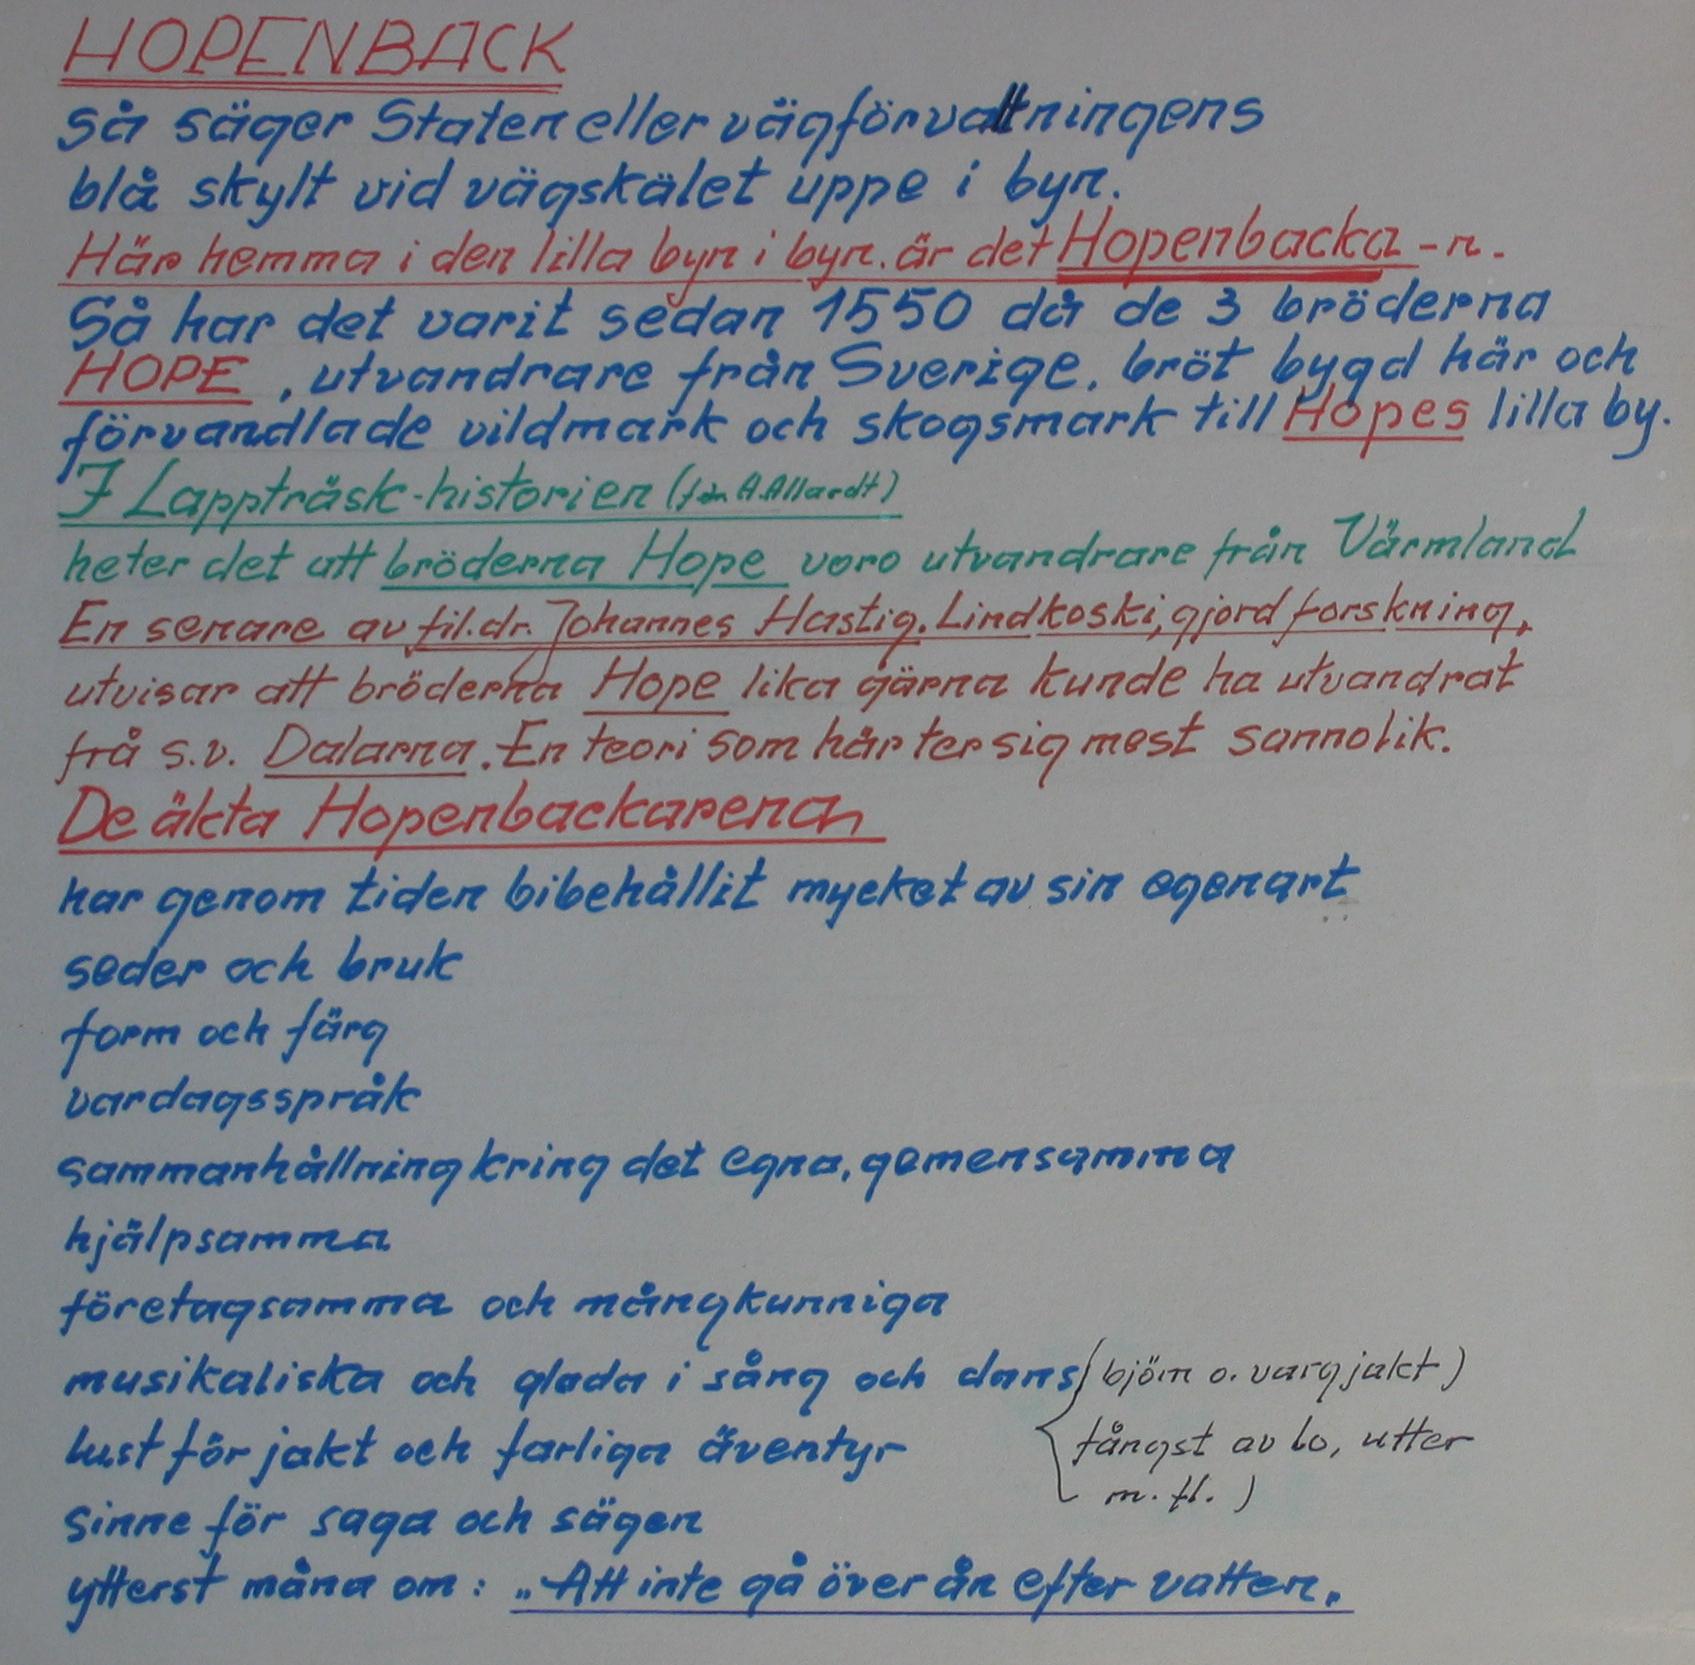 HOPENBACK
Så säger Staten eller vägförvaltningens
blå skylt vid vägskälet uppe i byn.
Här hemma i den lilla byn i byn. är det Hopenbacka-n.
Så har det varit sedan 1550 då de 3 bröderna
HOPE, utvandrare från Sverige, bröt bygd här och
förvandlade vildmark och skogsmark till Hopes lilla by.
I Lappträsk-historien (för A.Allardt)
heter det att bröderna Hope voro utvandrare från Värmland
En senare av fil.dr. Johannes Hastig. Lindkoski, gjord forskning,
utvisar att bröderna Hope lika gärna kunde ha utvandrat
frå s.v. Dalarna. En teori som här ter sig mest sannolik.
De äkta Hopenbackarena
har genom tiden bibehållit mycket av sin egenart
seder och bruk
form och färg
vardagsspråk
sammanhållning kring det egna, gemensamma
hjälpsamma
företagsamma och mångkunniga
musikaliska och glada i sång och dans (björn o. vargjakt)
lust för jakt och farliga äventyr fångst av lo, utter
m.fl.)
sinne för saga och sägen
ytterst måna om: „Att inte gå över ån efter vatten„